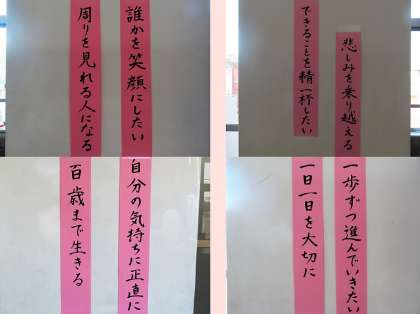 誰かを笑顔にしたい
周りを見れる人になる
悲しみを乗り越える
できることを精一杯したい
自分の気持ちに正直に
百歳まで生きる
一歩ずつ進んでいきたい
一日一日を大切に